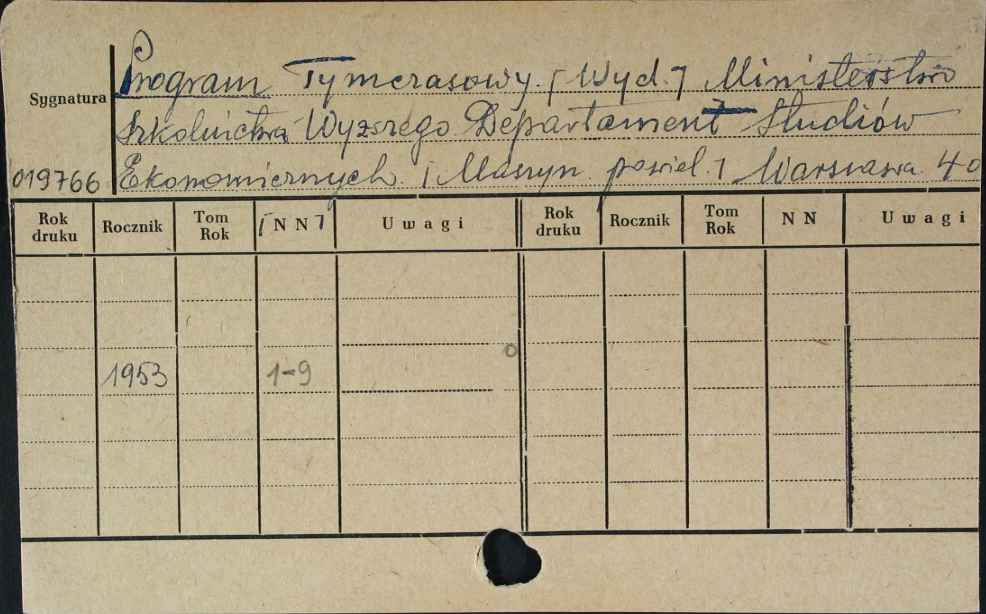 Program Tymczasowy. [Wyd.] Ministerstwo
Sygnatura
Szkolnictwa Wyższego Departament Studiów
019766 Ekonomicznych. [Maszyn. powiel.] Warszawa. 40
Rok druku Rocznik Tom Rok [NN] Uwagi Rok druku Rocznik Tom Rok NN Uwagi
1953 1-9